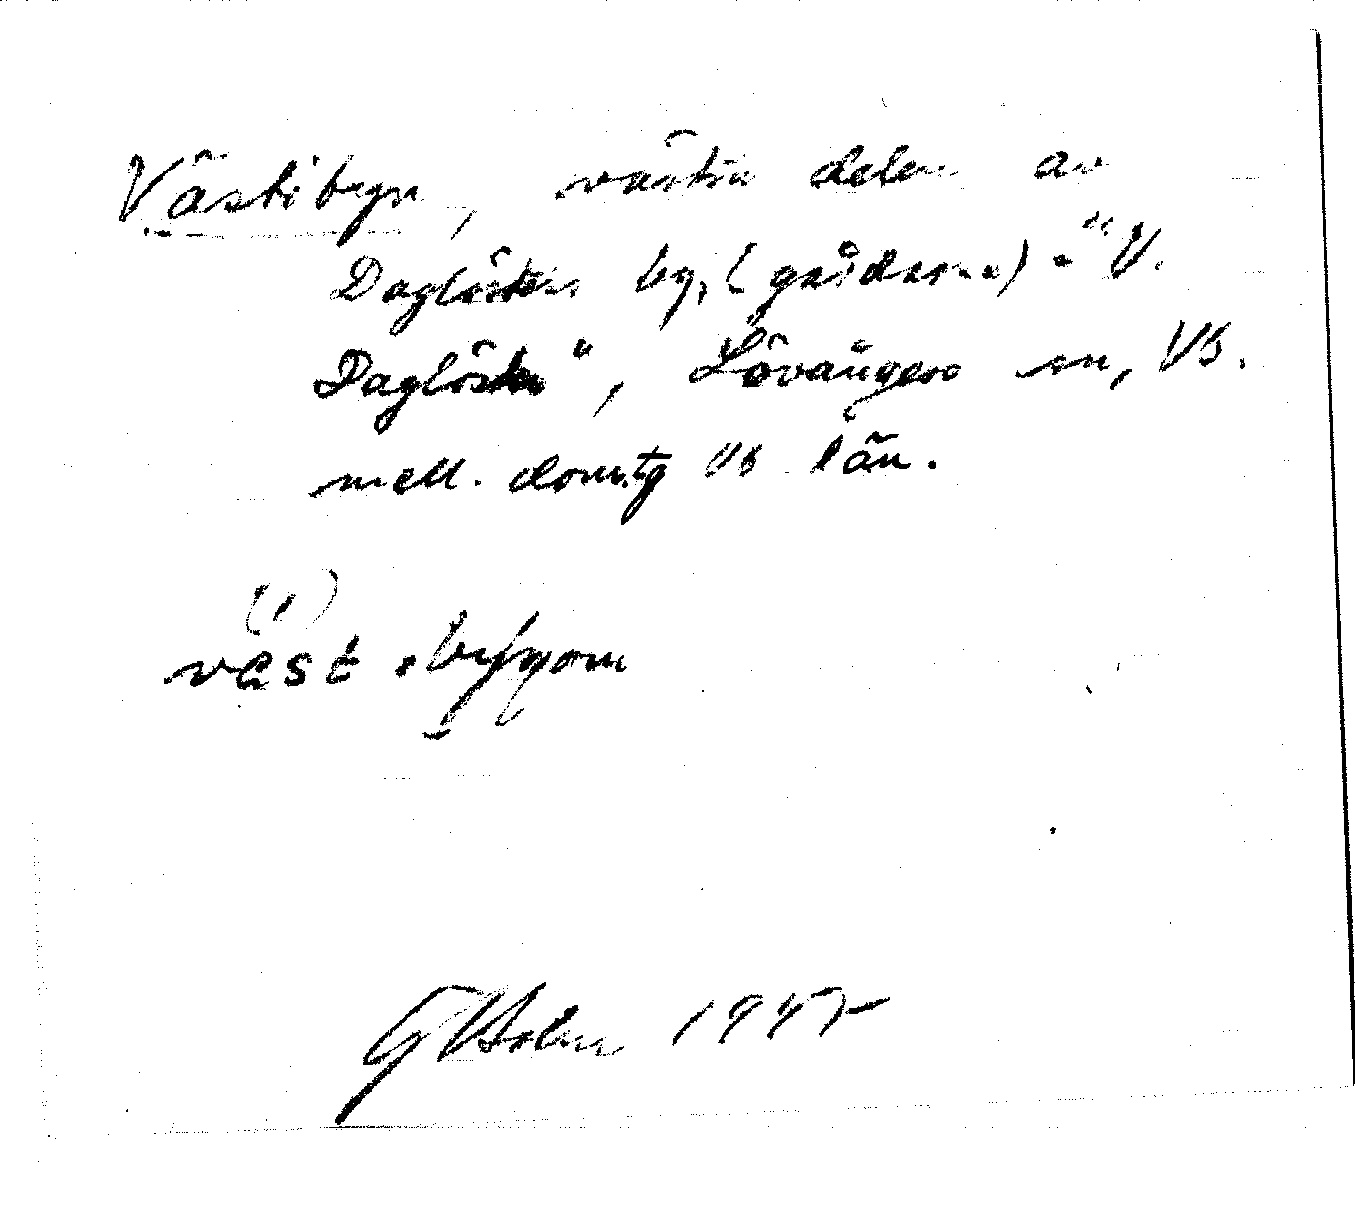 Västibyn, västra delen av
Daglösten by, (gårdarna) - "V.
Daglösten", Lövångers sn, Vb.
mell. domtg Vb län.
(i)
väst
G Holm 1945